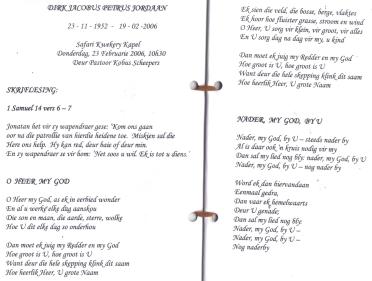 DIRK JACOBUS PETRUS JORDAAN
23 - 11 - 1932 - 19 - 02 -2006
Safari Kwekery Kapel
Donderdag, 23 Februarie 2006, 10h30
Deur Pastoor Kobus Scheepers
SKRIFLESING:
1 Samuel 14 vers 6 – 7
Jonatan het vir sy wapendraer gesê: "Kom ons gaan
oor na die patrollie van hierdie heidene toe. Miskien sal die
Here ons help. Hy kan red, deur baie of deur min.
En sy wapendraer se vir hom: 'Net soos u wil. Ek is tot u diens.'
O HEER MY GOD
O Heer my God, as ek in eerbied wonder
En al u werke elke dag aanskou
Die son en maan, die aarde, sterre, wolke
Hoe U dit elke dag so onderhou
Dan moet ek juig my Redder en my God
Hoe groot is U, hoe groot is U
Want deur die hele skepping klink dit saam
Hoe heerlik Heer, U grote Naam
Ek sien die veld, die bosse, berge, vlaktes
Ek hoor hoe fluister grasse, stroom en wind
O Heer, U sorg vir klein, vir groot, vir alles
En U sorg dag na dag vir my, u kind
Dan moet ek juig my Redder en my God
Hoe groot is U, hoe groot is U
Want deur die hele skepping klink dit saam
Hoe heerlik Heer, U grote Naam
NADER, MY GOD, BY U
Nader, my God, by U – steeds nader by
Al is daar ook 'n kruis nodig vir my
Dan sal my lied nog bly: nader, my God, by U
Nader, my God, by U – nog nader by
Word ek dan hiervandaan
Eenmaal gedra,
Dan waar ek hemelwaarts
Deur U genade;
Dan sal my lied nog bly:
Nader, my God, by U –
Nader, my God, by U –
Nog naderby